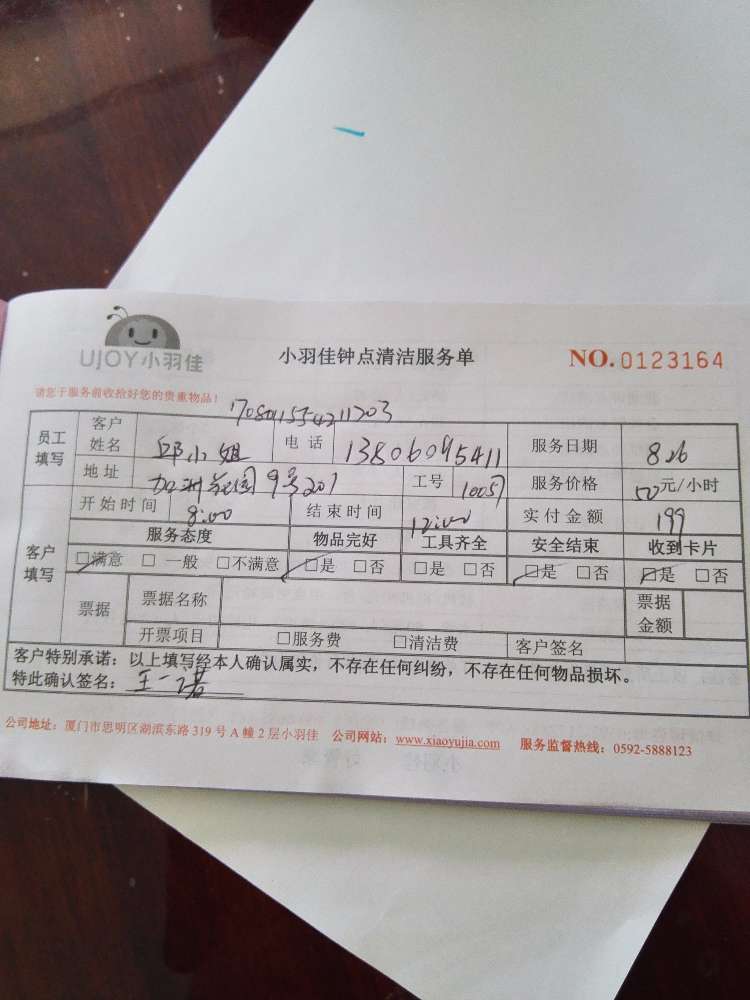 UJOY小羽佳
小羽佳钟点清洁服务单
NO. 0123164
请您于服务前收拾好您的贵重物品!
员工填写 客户姓名 邱小姐 电话 13806095411 服务日期 8.26
地址 加洲花园9号201 工号 服务价格 50元/小时
客户填写 开始时间 8:00 结束时间 12:00 实付金额 199
服务态度 物品完好 工具齐全 安全结束 收到卡片
☑满意 □一般 □不满意 ☑是 □否 □是 □否 ☑是 □否 ☑是 □否
票据 票据名称 票据金额
开票项目 □服务费 □清洁费 客户签名
客户特别承诺:以上填写经本人确认属实,不存在任何纠纷,不存在任何物品损坏。
特此确认签名:王一诺
公司地址:厦门市思明区湖滨东路319号A幢2层小羽佳 公司网站:www.xiaoyujia.com 服务监督热线:0592-5888123